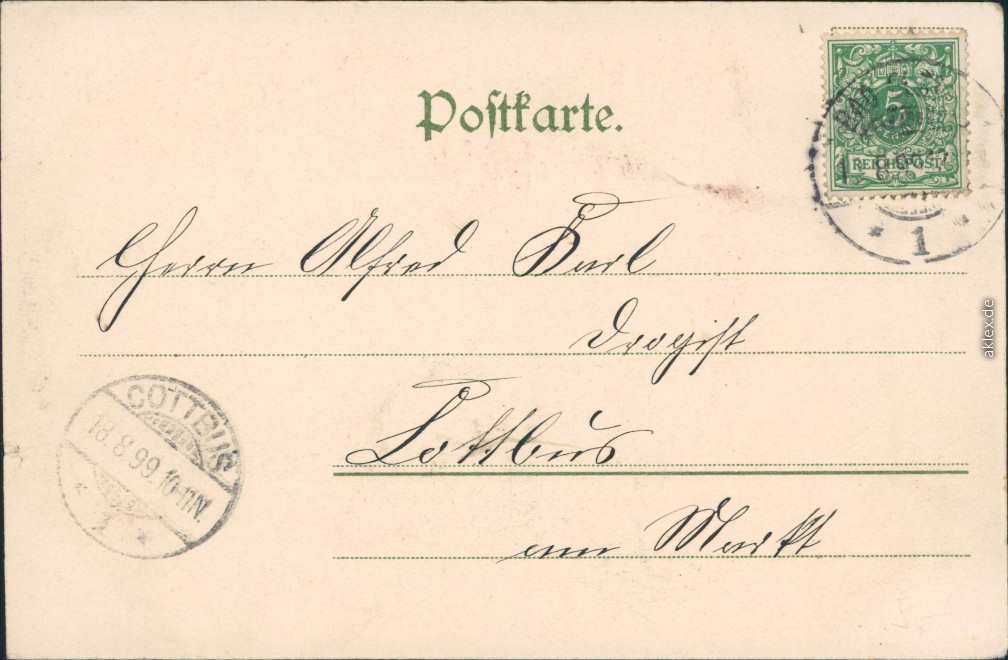 Postkarte.
5
REICHSPOST
1
Herrn Alfred Karl
Drogist
Cottbus
am Markt
COTTBUS
18.8.99.10-11N.
* 1 *
aklex.de